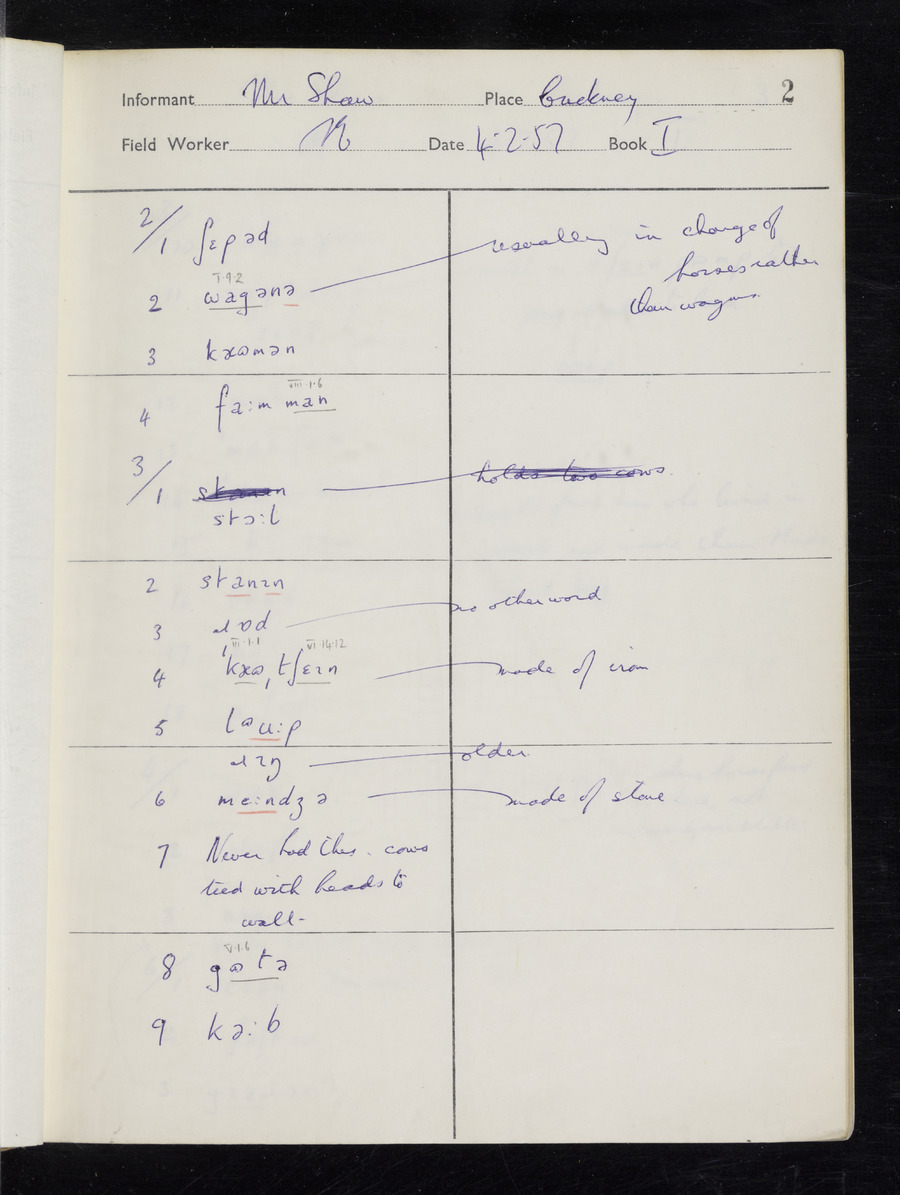 2
Informant Mr Shaw Place Cuckney
Field Worker Date 4-2-57 Book I
2/1 ʃɛpəd usually in charge of
I 9.2 horses rather
2 wagənə than wagons.
3 kaʊmən
VIII.1.6
4 fa:m man
3/1 holds two cows.
stɔ:l
2 stanɪn
3 ɹɒd no other word
VI.14.12
4 tʃɛɪn made of iron
5 lᵊu:p
ɹɪŋ older.
6 mɛ:ndʒə made of stone
7 Never had this. cows
tied with heads to
wall-
V.1.6
8 gʊtə
9 kə:b